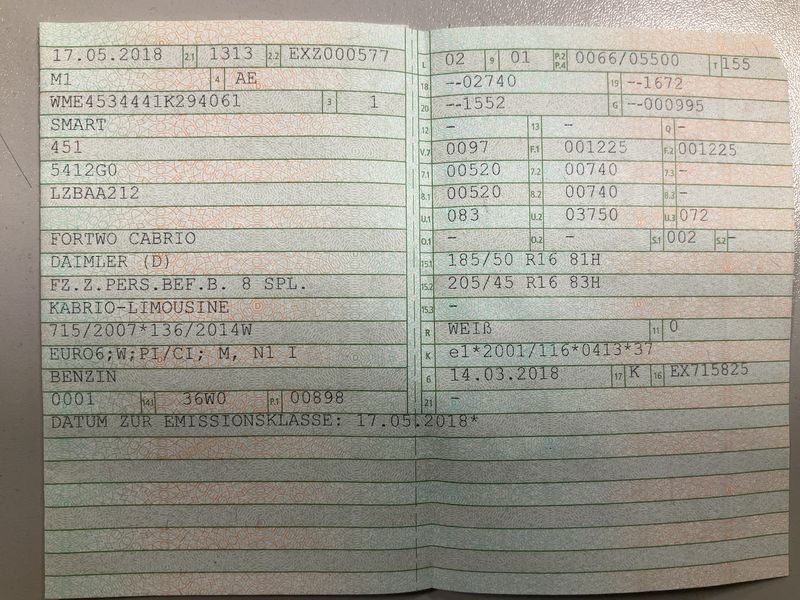 17.05.2018 2.1 1313 2.2 EXZ000577
M1 4 AE
WME4534441K294061 3 1
SMART
451
5412G0
LZBAA212
FORTWO CABRIO
DAIMLER (D)
FZ.Z.PERS.BEF.B. 8 SPL.
KABRIO-LIMOUSINE
715/2007*136/2014W
EURO6;W;PI/CI; M, N1 I
BENZIN
0001 14.1 36W0 P.1 00898
DATUM ZUR EMISSIONSKLASSE: 17.05.2018*
L 02 9 01 P.2 P.4 0066/05500 T 155
18 --02740 19 --1672
20 --1552 G --000995
12 - 13 - Q -
V.7 0097 F.1 001225 F.2 001225
7.1 00520 7.2 00740 7.3 -
8.1 00520 8.2 00740 8.3 -
U.1 083 U.2 03750 U.3 072
O.1 - O.2 - S.1 002 S.2 -
15.1 185/50 R16 81H
15.2 205/45 R16 83H
15.3 -
R WEIß 11 0
K e1*2001/116*0413*37
6 14.03.2018 17 K 16 EX715825
21 -